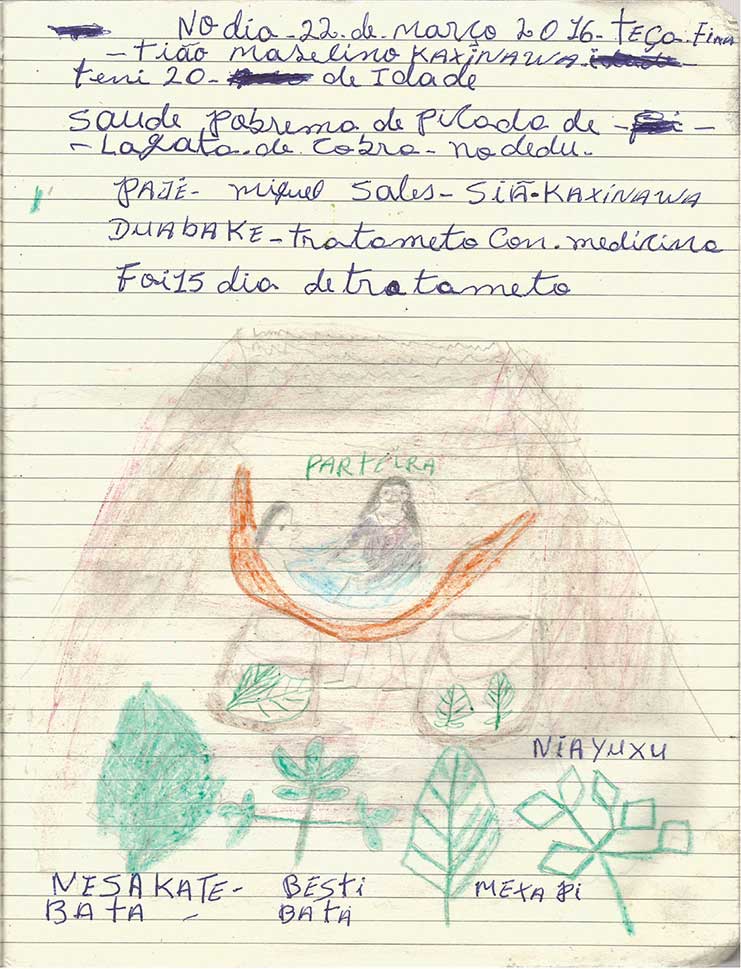 No dia - 22 de março 2016 - teça fira
- tião maselino KAXINAWA -
teni 20 - de Idade
saude pobrema de picada de -
- Lagata de cobra - no dedu.
PAJÉ - miguel Sales - SIÃ - KAXINAWA
DUABAKE - tratameto con. medicina
Foi 15 dia de tratameto
PARTEIRA
NIAYUXU
NESAKATE - BESTI MEXA PI
BATA - BATA